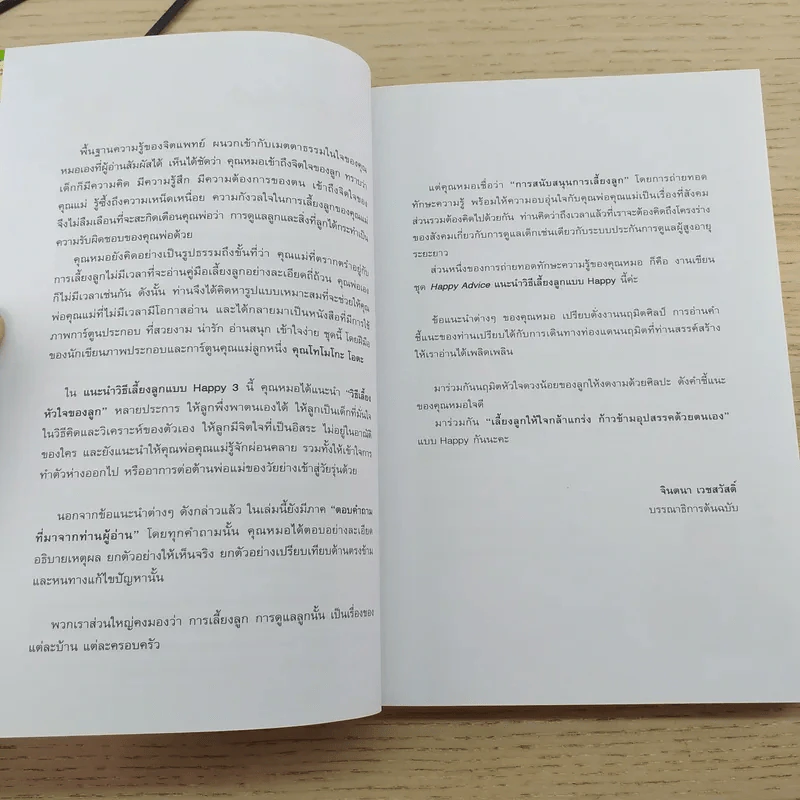 พื้นฐานความรู้ของจิตแพทย์ ผนวกเข้ากับเมตตาธรรมในใจของคุณ
หมอเองที่ผู้อ่านสัมผัสได้ เห็นได้ชัดว่า คุณหมอเข้าถึงจิตใจของลูก ทราบว่า
เด็กก็มีความคิด มีความรู้สึก มีความต้องการของตน เข้าถึงจิตใจของ
คุณแม่ รู้ซึ้งถึงความเหน็ดเหนื่อย ความกังวลใจในการเลี้ยงลูกของคุณแม่
จึงไม่ลืมเลือนที่จะสะกิดเตือนคุณพ่อว่า การดูแลลูกและสิ่งที่ลูกได้กระทำเป็น
ความรับผิดชอบของคุณพ่อด้วย
คุณหมอยังคิดอย่างเป็นรูปธรรมถึงขั้นที่ว่า คุณแม่ที่ตรากตรำอยู่กับ
การเลี้ยงลูกไม่มีเวลาที่จะอ่านคู่มือเลี้ยงลูกอย่างละเอียดถี่ถ้วน คุณพ่อเอง
ก็ไม่มีเวลาเช่นกัน ดังนั้น ท่านจึงได้คิดหารูปแบบเหมาะสมที่จะช่วยให้คุณ
พ่อคุณแม่ที่ไม่มีเวลามีโอกาสอ่าน และได้กลายมาเป็นหนังสือที่มีการใช้
ภาพการ์ตูนประกอบ ที่สวยงาม น่ารัก อ่านสนุก เข้าใจง่าย ชุดนี้ โดยฝีมือ
ของนักเขียนภาพประกอบและการ์ตูนคุณแม่ลูกหนึ่ง คุณโทโมโกะ โอตะ
ใน แนะนำวิธีเลี้ยงลูกแบบ Happy 3 นี้ คุณหมอได้แนะนำ “วิธีเลี้ยง
หัวใจของลูก” หลายประการ ให้ลูกพึ่งพาตนเองได้ ให้ลูกเป็นเด็กที่มั่นใจ
ในวิธีคิดและวิเคราะห์ของตัวเอง ให้ลูกมีจิตใจที่เป็นอิสระ ไม่อยู่ในอาณัติ
ของใคร และยังแนะนำให้คุณพ่อคุณแม่รู้จักผ่อนคลาย รวมทั้งให้เข้าใจการ
ทำตัวห่างออกไป หรืออาการต่อต้านพ่อแม่ของวัยย่างเข้าสู่วัยรุ่นด้วย
นอกจากข้อแนะนำต่างๆ ดังกล่าวแล้ว ในเล่มนี้ยังมีภาค “ตอบคำถาม
ที่มาจากท่านผู้อ่าน” โดยทุกคำถามนั้น คุณหมอได้ตอบอย่างละเอียด
อธิบายเหตุผล ยกตัวอย่างให้เห็นจริง ยกตัวอย่างเปรียบเทียบด้านตรงข้าม
และหนทางแก้ไขปัญหานั้น
พวกเราส่วนใหญ่คงมองว่า การเลี้ยงลูก การดูแลลูกนั้น เป็นเรื่องของ
แต่ละบ้าน แต่ละครอบครัว
แต่คุณหมอเชื่อว่า “การสนับสนุนการเลี้ยงลูก” โดยการถ่ายทอด
ทักษะความรู้ พร้อมให้ความอบอุ่นใจกับคุณพ่อคุณแม่เป็นเรื่องที่สังคม
ส่วนรวมต้องคิดไปด้วยกัน ท่านคิดว่าถึงเวลาแล้วที่เราจะต้องคิดถึงโครงร่าง
ของสังคมเกี่ยวกับการดูแลเด็กเช่นเดียวกับระบบประกันการดูแลผู้สูงอายุ
ระยะยาว
ส่วนหนึ่งของการถ่ายทอดทักษะความรู้ของคุณหมอ ก็คือ งานเขียน
ชุด Happy Advice แนะนำวิธีเลี้ยงลูกแบบ Happy นี้ค่ะ
ข้อแนะนำต่างๆ ของคุณหมอ เปรียบดั่งงานนฤมิตศิลป์ การอ่านคำ
ชี้แนะของท่านเปรียบได้กับการเดินทางท่องแดนนฤมิตที่ท่านสรรค์สร้าง
ให้เราอ่านได้เพลิดเพลิน
มาร่วมกันนฤมิตหัวใจดวงน้อยของลูกให้งดงามด้วยศิลปะ ดังคำชี้แนะ
ของคุณหมอใจดี
มาร่วมกัน “เลี้ยงลูกให้ใจกล้าแกร่ง ก้าวข้ามอุปสรรคด้วยตนเอง”
แบบ Happy กันนะคะ
จินตนา เวชสวัสดิ์
บรรณาธิการต้นฉบับ